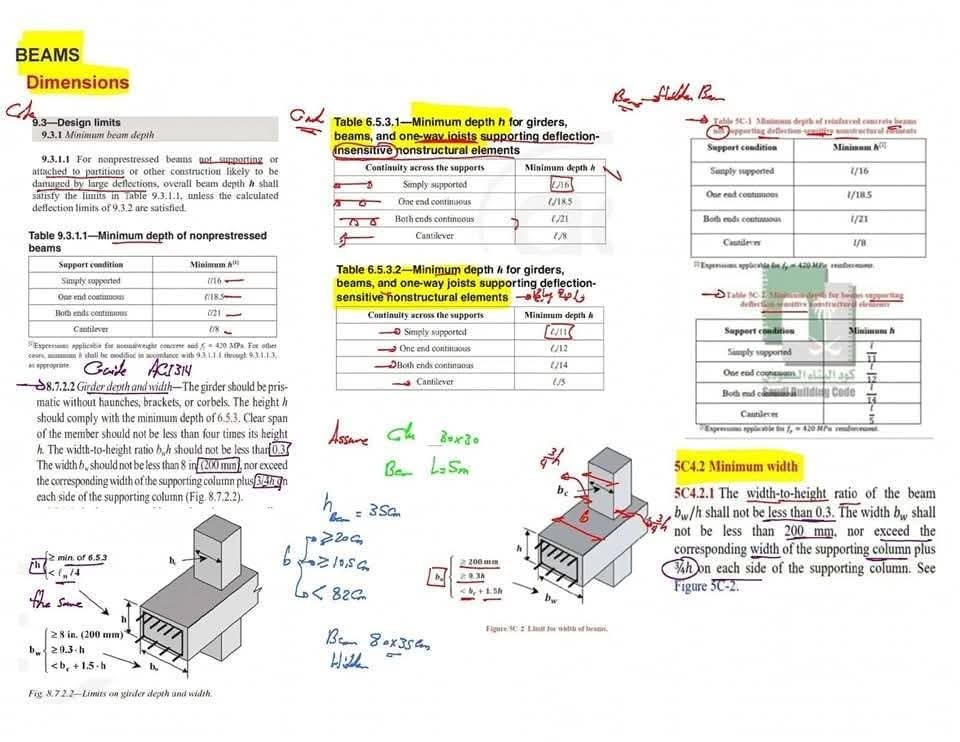 BEAMS
Dimensions
Code
9.3—Design limits
9.3.1 Minimum beam depth
9.3.1.1 For nonprestressed beams not supporting or
attached to partitions or other construction likely to be
damaged by large deflections, overall beam depth h shall
satisfy the limits in Table 9.3.1.1, unless the calculated
deflection limits of 9.3.2 are satisfied.
Table 9.3.1.1—Minimum depth of nonprestressed
beams
Support condition Minimum h[1]
Simply supported ℓ/16
One end continuous ℓ/18.5
Both ends continuous ℓ/21
Cantilever ℓ/8
[1]Expressions applicable for normalweight concrete and fy = 420 MPa. For other
cases, minimum h shall be modified in accordance with 9.3.1.1.1 through 9.3.1.1.3,
as appropriate.
Guide ACI 314
8.7.2.2 Girder depth and width—The girder should be pris-
matic without haunches, brackets, or corbels. The height h
should comply with the minimum depth of 6.5.3. Clear span
of the member should not be less than four times its height
h. The width-to-height ratio bw/h should not be less than 0.3.
The width bw should not be less than 8 in. (200 mm), nor exceed
the corresponding width of the supporting column plus 3/4h on
each side of the supporting column (Fig. 8.7.2.2).
h
≥ min. of 6.5.3
< ℓn/4
the same
h
bw
≥ 8 in. (200 mm)
≥ 0.3·h
< bc + 1.5·h
Fig. 8.7.2.2—Limits on girder depth and width.
Guide
Table 6.5.3.1—Minimum depth h for girders,
beams, and one-way joists supporting deflection-
insensitive nonstructural elements
Continuity across the supports Minimum depth h
Simply supported ℓ/16
One end continuous ℓ/18.5
Both ends continuous ℓ/21
Cantilever ℓ/8
Table 6.5.3.2—Minimum depth h for girders,
beams, and one-way joists supporting deflection-
sensitive nonstructural elements
Continuity across the supports Minimum depth h
Simply supported ℓ/11
One end continuous ℓ/12
Both ends continuous ℓ/14
Cantilever ℓ/5
Assume Col 30x30
Beam L=5m
h Beam = 35cm
b
≥20cm
≥10.5cm
< 82cm
Beam 80x35cm
Hidden
3/4 h
bc
b
3/4 h
h
bw
bw
≥ 200 mm
≥ 0.3h
< bc + 1.5h
Figure 5C-2 Limit for width of beams.
Beam Hidden Beam
Table 5C-1 Minimum depth of reinforced concrete beams
not supporting deflection-sensitive nonstructural elements
Support condition Minimum h[1]
Simply supported l/16
One end continuous l/18.5
Both ends continuous l/21
Cantilever l/8
[1]Expressions applicable for fy = 420 MPa reinforcement.
Table 5C-2 Minimum depth for beams supporting
deflection-sensitive nonstructural elements
Support condition Minimum h
Simply supported l/11
One end continuous l/12
Both ends continuous l/14
Cantilever l/5
كود البناء السعودي
Saudi Building Code
[1]Expressions applicable for fy = 420 MPa reinforcement.
5C4.2 Minimum width
5C4.2.1 The width-to-height ratio of the beam
bw/h shall not be less than 0.3. The width bw shall
not be less than 200 mm, nor exceed the
corresponding width of the supporting column plus
¾h on each side of the supporting column. See
Figure 5C-2.